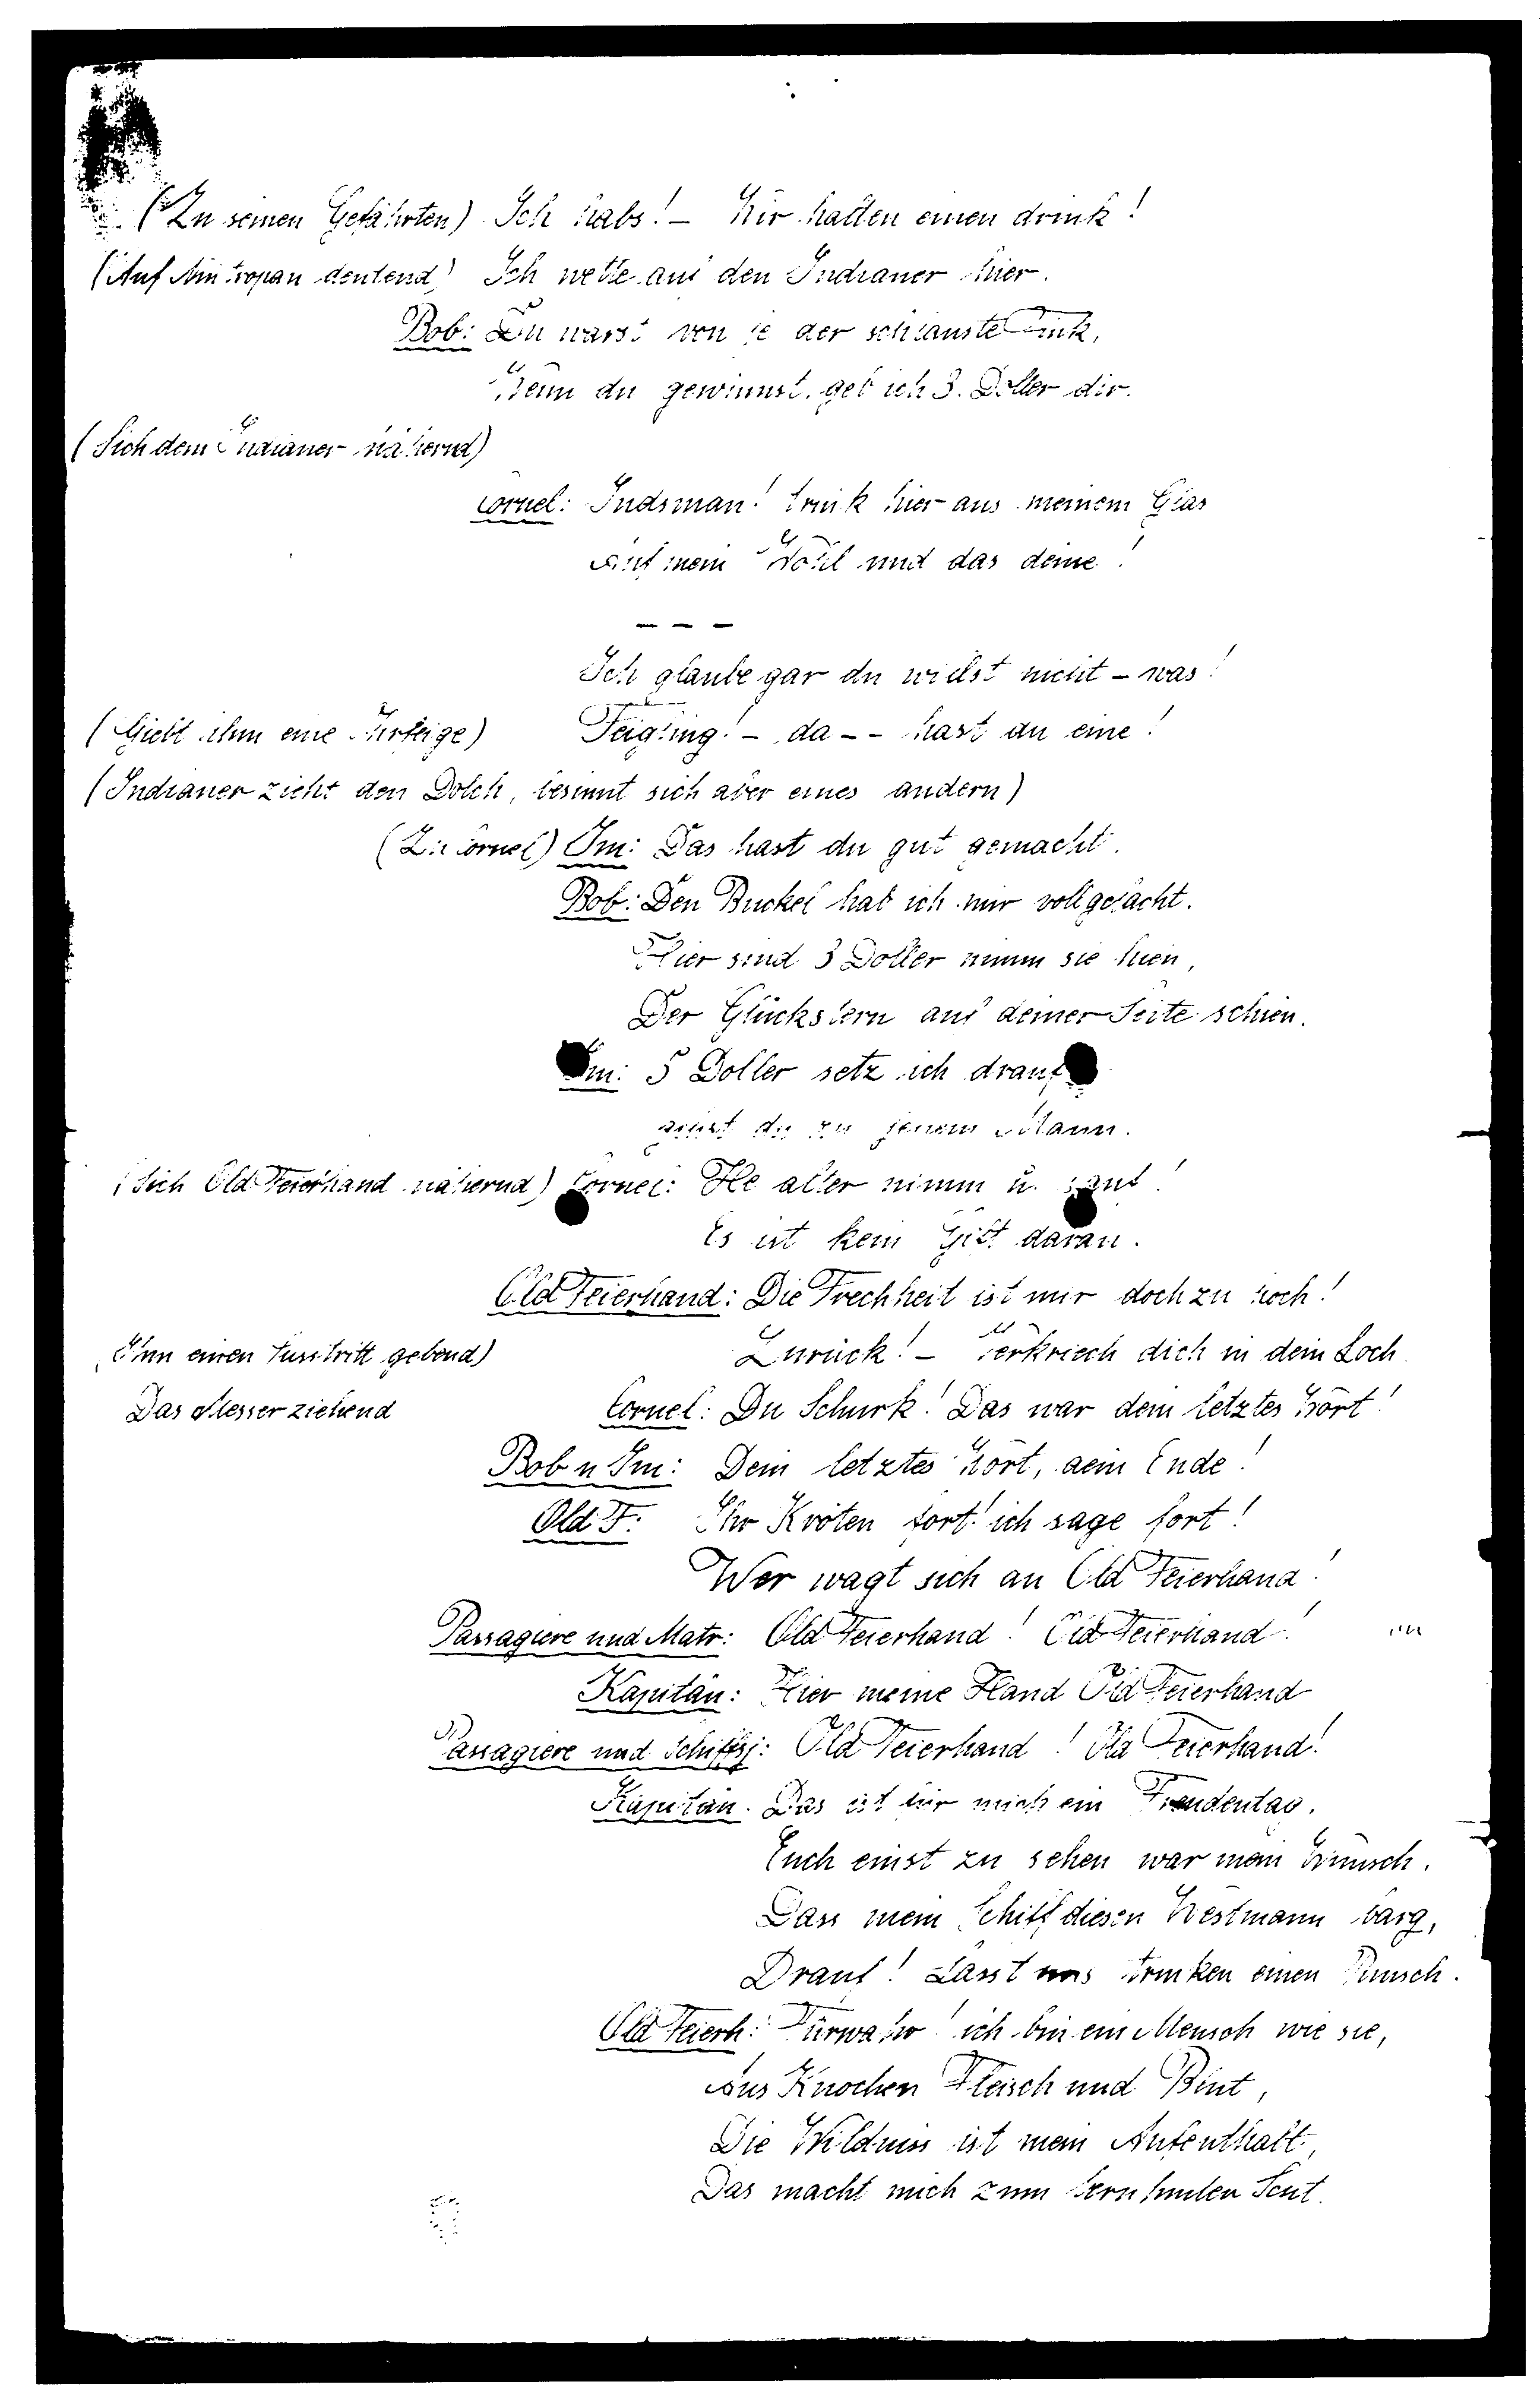 (Zu seinen Gefährten) Ich habs! – Wir halten einen drink!
(Auf Nintropan deutend) Ich wette auf den Indianer hier.
Bob: Du warst von je der schlauste Fink,
Wenn du gewinnst, geb ich 3. Doller dir.
(Sich dem Indianer nähernd)
Cornel: Indsman! trink hier aus meinem Glas
Auf mein Wohl und das deine!
– – –
Ich glaube gar du willst nicht – was!
(Giebt ihm eine Ohrfeige) Feigling! – da – – hast du eine!
(Indianer zieht den Dolch, besinnt sich aber eines andern)
(Zu Cornel) Jm: Das hast du gut gemacht.
Bob: Den Buckel hab ich mir voll gelacht.
Hier sind 3 Doller nimm sie hien,
Der Glückstern auf deiner Seite schien.
Jm: 5 Doller setz ich drauf
du zu jenem Mann.
(Sich Old Feierhand nähernd) Cornel: He alter nimm u. sauf!
Es ist kein Gift daran.
Old Feierhand: Die Frechheit ist mir doch zu hoch!
(Ihm einen Fusstritt gebend) Zurück! – Verkriech dich in dein Loch.
Das Messer ziehend Cornel: Du Schurk! Das war dein letztes Wort!
Bob u Jm: Dein letztes Wort, dein Ende!
Old F: Ihr Kröten fort! ich sage fort!
Wer wagt sich an Old Feierhand!
Passagiere und Matr: Old Feierhand! Old Feierhand!
Kapitän: Hier meine Hand Old Feierhand
Passagiere und Schiffsj: Old Feierhand! Old Feierhand!
Kapitän. Das ist für mich ein Freudentag,
Euch einst zu sehen war mein Wunsch.
Dass mein Schiff diesen Westmann barg,
Drauf! Lasst uns trinken einen Punsch.
Old Feierh: Fürwahr! ich bin ein Mensch wie sie,
Aus Knochen Fleisch und Blut,
Die Wildniss ist mein Aufenthalt,
Das macht mich zum berühmten Scut.